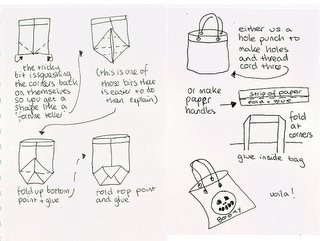 the tricky
bit is squashing
the corners back
on themselves
so you get a
shape like a
fortune teller
(this is one of
those bits that
is easier to do
than explain)
fold up bottom
point + glue
fold top point
and glue
either us a
hole punch to
make holes
and thread
cord thro'
or make
paper
handles
strip of paper
fold + glue
fold
at
corners
glue inside bag
voila!